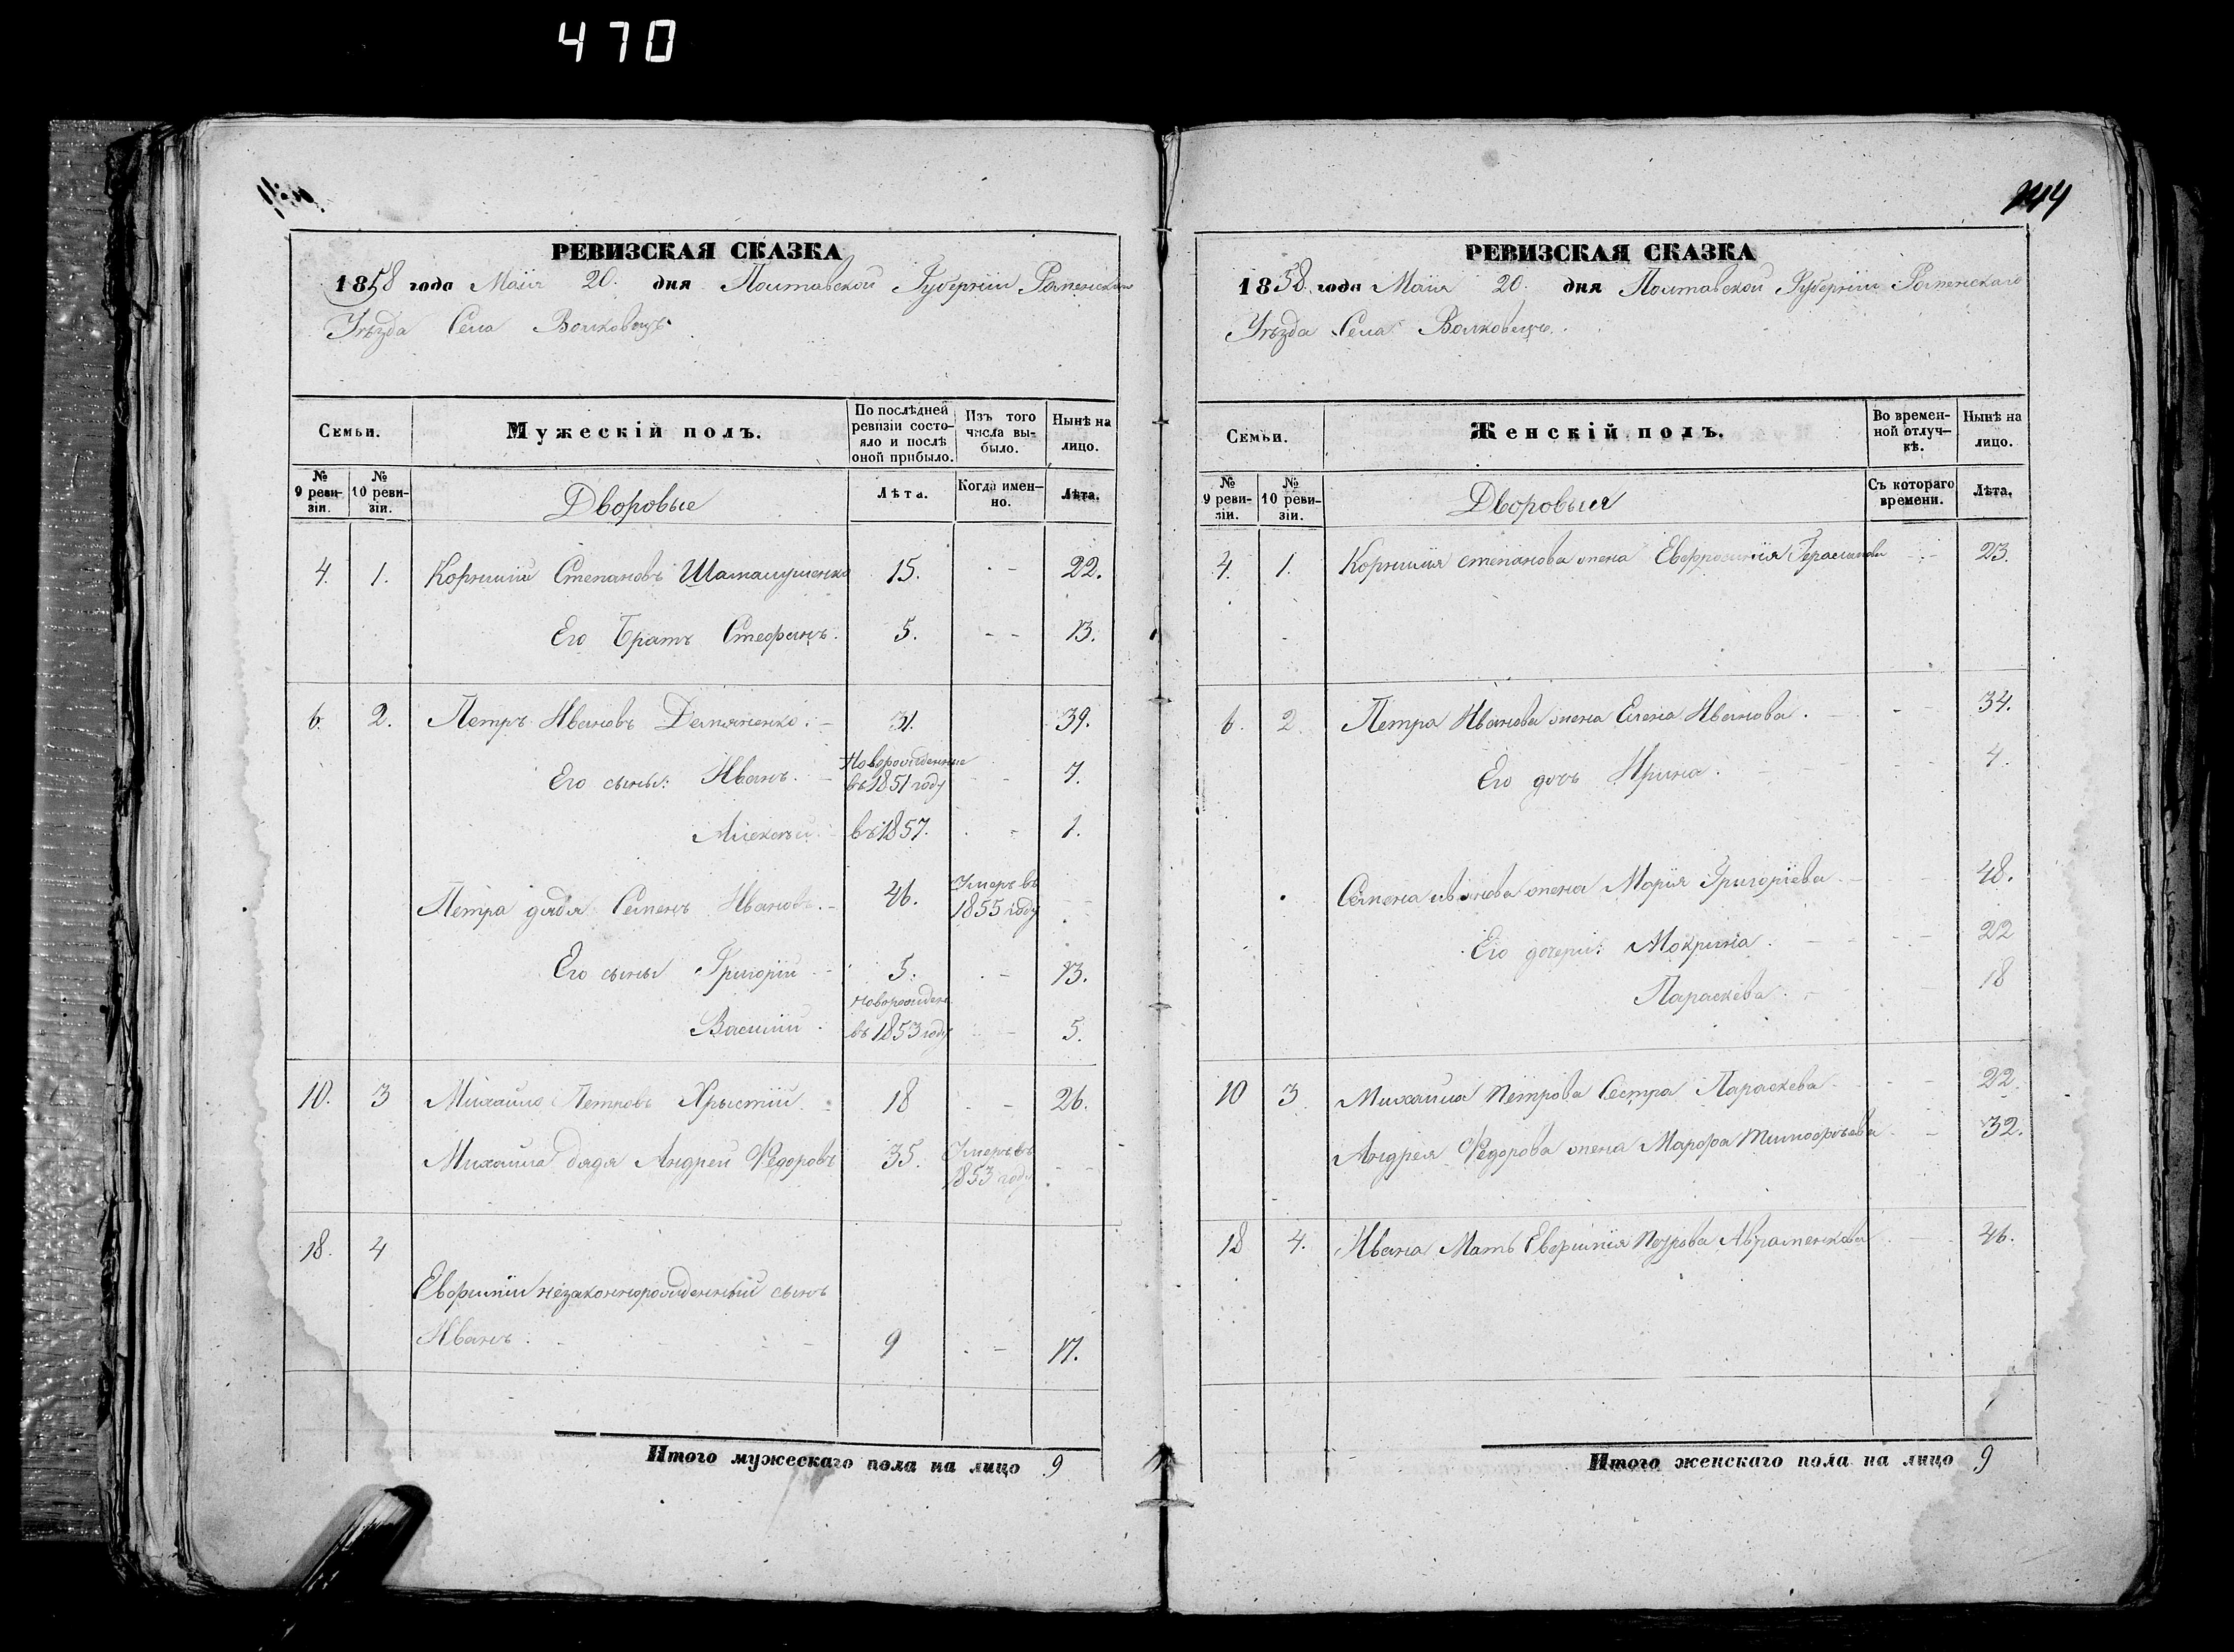 470
РЕВИЗСКАЯ СКАЗКА
1858 года Маiя 20. дня Полтавской Губернiи Роменскаго
Уѣзда Села Волковецъ.
Семьи.
Мужескiй полъ.
По послѣдней ревизiи состояло и послѣ оной прибыло.
Изъ того числа выбыло.
Нынѣ на лицо.
№ 9 ревизiи.
№ 10 ревизiи.
Дворовые
Лѣта.
Когда именно.
Лѣта.
4. 1. Корнилiй Степановъ 15. - - 22.
Его Братъ Стефанъ. 5. - - 13.
6. 2. Петръ Ивановъ Демяненко. 31. 39.
Его сыны: Иванъ. Новорожденные въ 1851 году - - 7.
Алексѣй. въ 1857. - 1.
Петра дядя Семенъ Ивановъ. 46. Умеръ въ 1855 году -
Его сыны Григорiй 5. - 13.
Василiй. Новорожден. въ 1853 году - 5.
10. 3 Михайло Петровъ Хрыстiй 18 - - 26.
Михайла дядя Андрей Федоровъ 35. Умеръ въ 1853 году. - -
18. 4
Евфимiи незаконнорожденный сынъ
Иванъ. 9 - 17.
Итого мужескаго пола на лицо 9
144
РЕВИЗСКАЯ СКАЗКА
1858 года Маiя 20. дня Полтавской Губернiи Роменскаго
Уѣзда Села Волковецъ.
Семьи.
Женскiй полъ.
Во временной отлучкѣ.
Нынѣ на лицо.
№ 9 ревизiи.
№ 10 ревизiи.
Дворовыя
Съ котораго времени.
Лѣта.
4. 1. Корнилiя степанова жена Евфросинiя Герасимова - 23.
6. 2. Петра Иванова жена Елена Иванова. - 34.
Его дочь Ирина. - 4.
Семена иванова жена Марiя Григорiева - 48.
Его дочери: Мокрина. - 22
Параскева. - 18
10 3 Михайла Петрова Сестра Параскева - 22.
Андрея Федорова жена Марфа Тимофѣева - 32.
18 4. Ивана Мать Евфимiя Петрова Авраменкова 46.
Итого женскаго пола на лицо 9